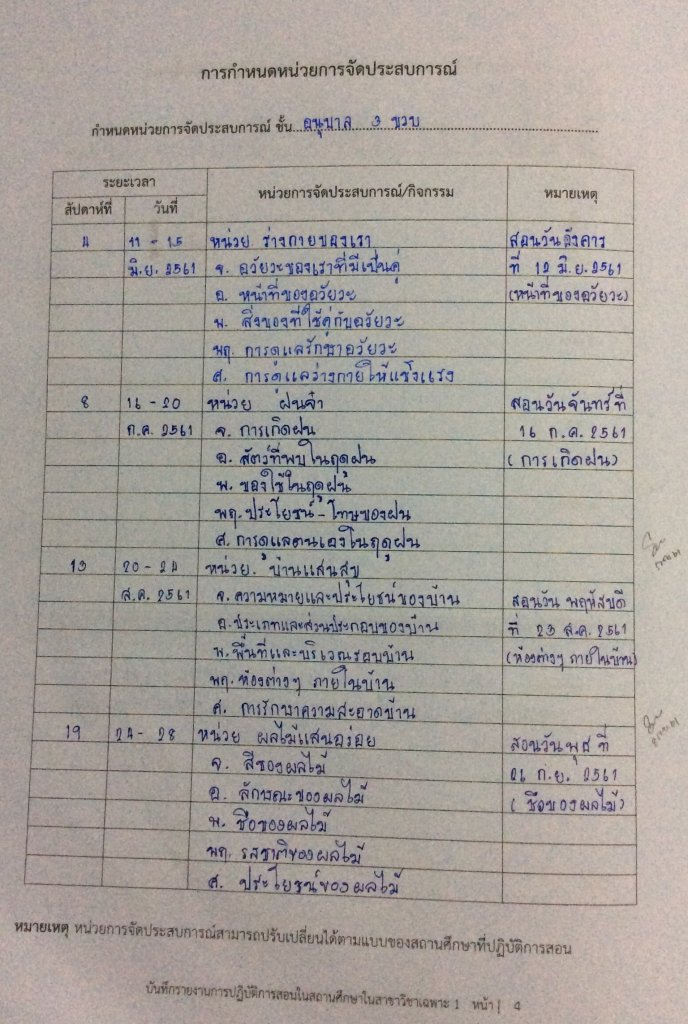 การกำหนดหน่วยการจัดประสบการณ์
กำหนดหน่วยการจัดประสบการณ์ ชั้น อนุบาล 3 ขวบ
ระยะเวลา หน่วยการจัดประสบการณ์/กิจกรรม หมายเหตุ
สัปดาห์ที่ วันที่
4 11 - 15 หน่วย ร่างกายของเรา สอนวันอังคาร
มิ.ย. 2561 จ. อวัยวะของเราที่มีเป็นคู่ ที่ 12 มิ.ย. 2561
อ. หน้าที่ของอวัยวะ (หน้าที่ของอวัยวะ)
พ. สิ่งของที่ใช้คู่กับอวัยวะ
พฤ. การดูแลรักษาอวัยวะ
ศ. การดูแลร่างกายให้แข็งแรง
8 16 - 20 หน่วย ฝนจ๋า สอนวันจันทร์ที่
ก.ค. 2561 จ. การเกิดฝน 16 ก.ค. 2561
อ. สัตว์ที่พบในฤดูฝน (การเกิดฝน)
พ. ของใช้ในฤดูฝน
พฤ. ประโยชน์ - โทษของฝน
ศ. การดูแลตนเองในฤดูฝน
13 20 - 24 หน่วย. บ้านแสนสุข
ส.ค. 2561 จ. ความหมายและประโยชน์ของบ้าน สอนวัน พฤหัสบดี
อ. ประเภทและส่วนประกอบของบ้าน ที่ 23 ส.ค. 2561
พ. พื้นที่และบริเวณรอบบ้าน (ห้องต่างๆ ภายในบ้าน)
พฤ. ห้องต่างๆ ภายในบ้าน
ศ. การรักษาความสะอาดบ้าน
19 24 - 28 หน่วย ผลไม้แสนอร่อย สอนวันพุธ ที่
จ. สีของผลไม้ 26 ก.ย. 2561
อ. ลักษณะของผลไม้ (ชื่อของผลไม้)
พ. ชื่อของผลไม้
พฤ. รสชาติของผลไม้
ศ. ประโยชน์ของผลไม้
หมายเหตุ หน่วยการจัดประสบการณ์สามารถปรับเปลี่ยนได้ตามแบบของสถานศึกษาที่ปฏิบัติการสอน
บันทึกรายงานการปฏิบัติการสอนในสถานศึกษาในสาขาวิชาเฉพาะ 1 หน้า | 4